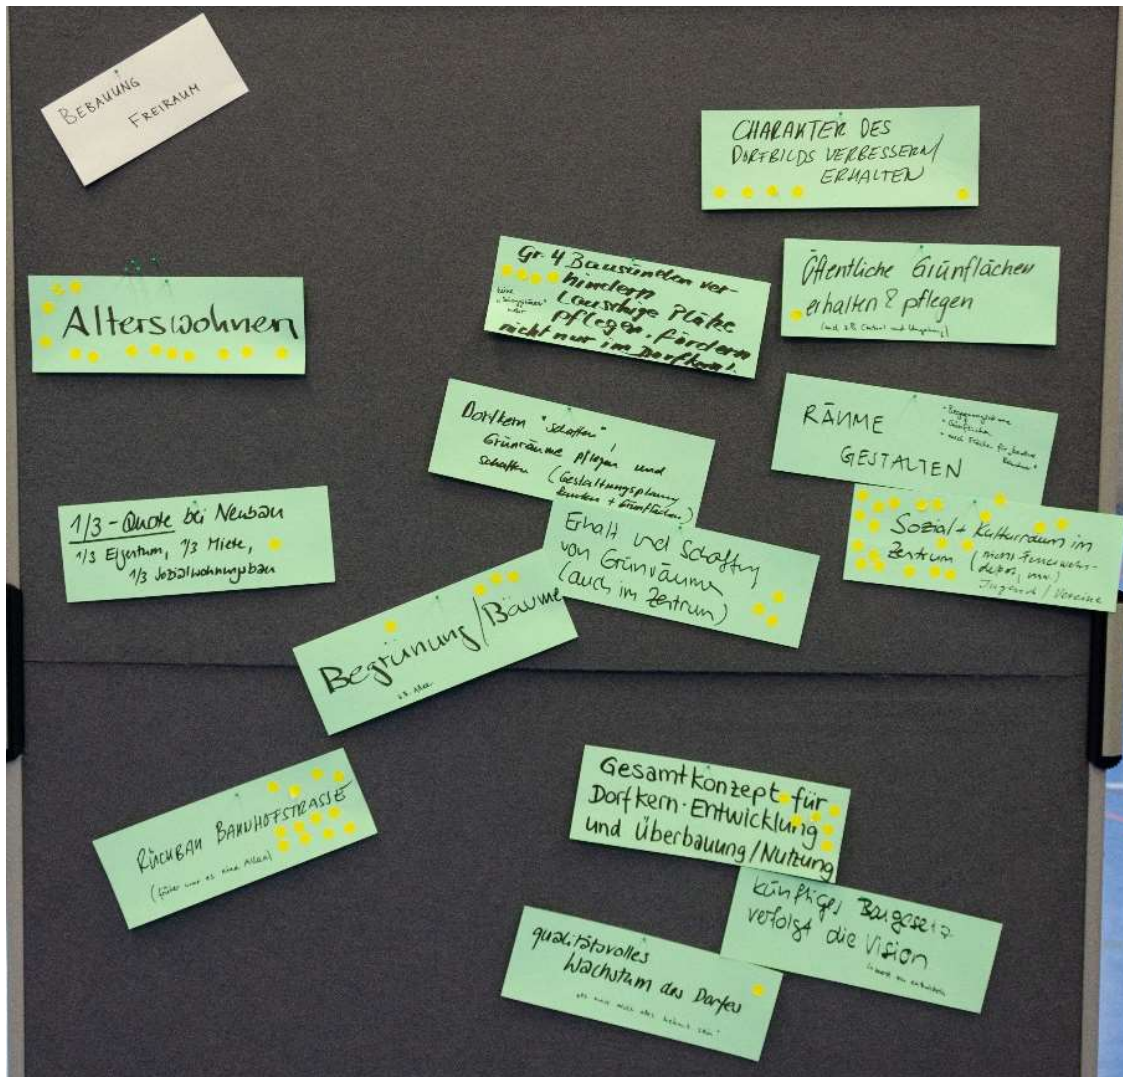 BEBAUUNG
FREIRAUM
CHARAKTER DES
DORFBILDS VERBESSERN/
ERHALTEN
Alterswohnen
Gr. 4 Bausünden ver-
hindern
Lauschige Plätze
pflegen, fördern
nicht nur im Dorfkern!
Öffentliche Grünflächen
erhalten & pflegen
Dorfkern "schaffen",
Grünräume pflegen und
schaffen (Gestaltungsplanung
+ Grünflächen)
RÄUME
GESTALTEN
1/3-Quote bei Neubau
1/3 Eigentum, 1/3 Miete,
1/3 Sozialwohnungsbau
Erhalt und Schaffung
von Grünräume
(auch im Zentrum)
Sozial + Kulturraum im
Zentrum
Jugend / Vereine
Begrünung/Bäume
RÜCKBAU BAHNHOFSTRASSE
(früher war es eine Allee)
Gesamtkonzept für
Dorfkern-Entwicklung
und Überbauung/Nutzung
künftiges Baugesetz
verfolgt die Vision
qualitätsvolles
Wachstum des Dorfes